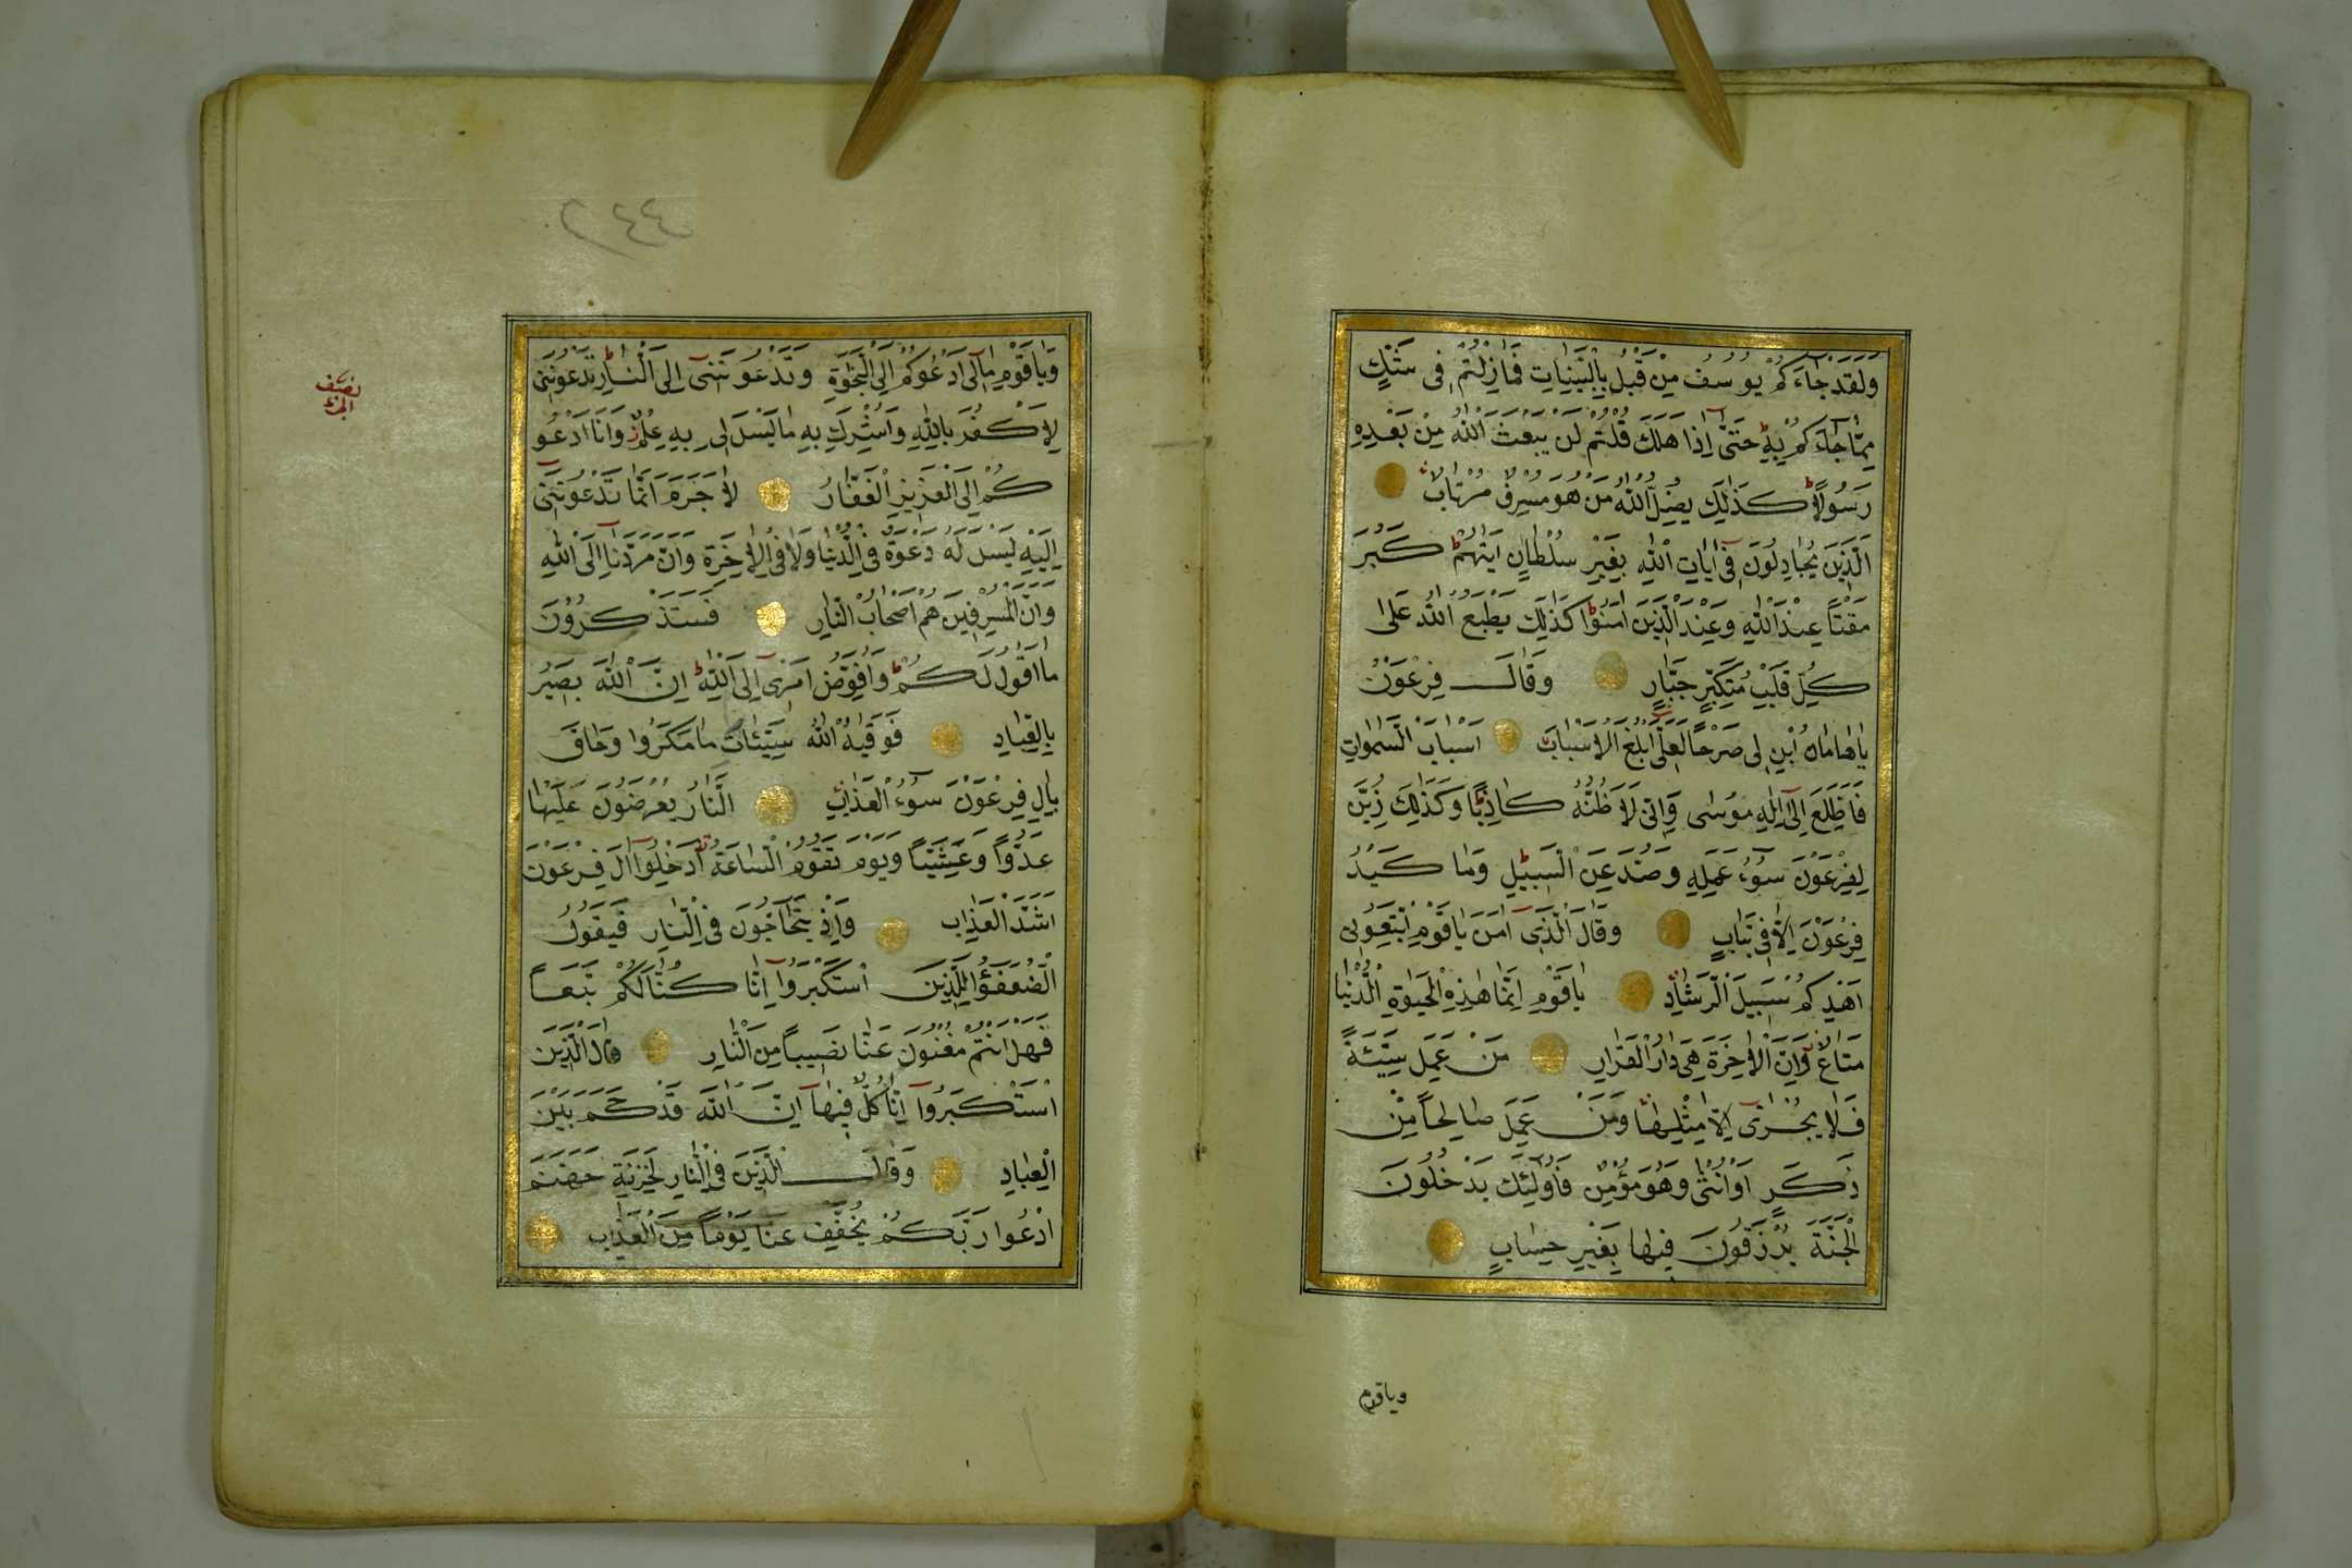 وَلَقَدْ جَاءَكُمْ يُوسُفُ مِنْ قَبْلُ بِالْبَيِّنَاتِ فَمَا زِلْتُمْ فِى شَكٍّ
مِمَّا جَاءَكُمْ بِهِ حَتَّى اِذَا هَلَكَ قُلْتُمْ لَنْ يَبْعَثَ اللّٰهُ مِنْ بَعْدِهِ
رَسُولاً كَذٰلِكَ يُضِلُّ اللّٰهُ مَنْ هُوَ مُسْرِفٌ مُرْتَابٌ
اَلَّذِينَ يُجَادِلُونَ فِى اٰيَاتِ اللّٰهِ بِغَيْرِ سُلْطَانٍ اَتٰيهُمْ كَبُرَ
مَقْتاً عِنْدَ اللّٰهِ وَعِنْدَ الَّذِينَ اٰمَنُوا كَذٰلِكَ يَطْبَعُ اللّٰهُ عَلٰى
كُلِّ قَلْبِ مُتَكَبِّرٍ جَبَّارٍ وَقَالَ فِرْعَوْنُ
يَاهَامَانُ ابْنِ لِى صَرْحاً لَعَلِّى اَبْلُغُ الْاَسْبَابَ اَسْبَابَ السَّمٰوَاتِ
فَاَطَّلِعَ اِلٰى اِلٰهِ مُوسٰى وَاِنِّى لَاَظُنُّهُ كَاذِباً وَكَذٰلِكَ زُيِّنَ
لِفِرْعَوْنَ سُوءُ عَمَلِهِ وَصُدَّ عَنِ السَّبِيلِ وَمَا كَيْدُ
فِرْعَوْنَ اِلَّا فِى تَبَابٍ وَقَالَ الَّذِى اٰمَنَ يَاقَوْمِ اتَّبِعُونِى
اَهْدِكُمْ سَبِيلَ الرَّشَادِ يَاقَوْمِ اِنَّمَا هٰذِهِ الْحَيٰوةُ الدُّنْيَا
مَتَاعٌ وَاِنَّ الْاٰخِرَةَ هِىَ دَارُ الْقَرَارِ مَنْ عَمِلَ سَيِّئَةً
فَلَا يُجْزٰى اِلَّا مِثْلَهَا وَمَنْ عَمِلَ صَالِحاً مِنْ
ذَكَرٍ اَوْ اُنْثٰى وَهُوَ مُؤْمِنٌ فَاُولٰئِكَ يَدْخُلُونَ
الْجَنَّةَ يُرْزَقُونَ فِيهَا بِغَيْرِ حِسَابٍ
وياقوم
٢٤٤
نصف الجزء
وَيَاقَوْمِ مَالِى اَدْعُوكُمْ اِلَى النَّجٰوةِ وَتَدْعُونَنِى اِلَى النَّارِ تَدْعُونَنِى
لِاَكْفُرَ بِاللّٰهِ وَاُشْرِكَ بِهِ مَا لَيْسَ لِى بِهِ عِلْمٌ وَاَنَا اَدْعُو
كُمْ اِلَى الْعَزِيزِ الْغَفَّارِ لَا جَرَمَ اَنَّمَا تَدْعُونَنِى
اِلَيْهِ لَيْسَ لَهُ دَعْوَةٌ فِى الدُّنْيَا وَلَا فِى الْاٰخِرَةِ وَاَنَّ مَرَدَّنَا اِلَى اللّٰهِ
وَاَنَّ الْمُسْرِفِينَ هُمْ اَصْحَابُ النَّارِ فَسَتَذْكُرُونَ
مَا اَقُولُ لَكُمْ وَاُفَوِّضُ اَمْرِى اِلَى اللّٰهِ اِنَّ اللّٰهَ بَصِيرٌ
بِالْعِبَادِ فَوَقٰيهُ اللّٰهُ سَيِّئَاتِ مَا مَكَرُوا وَحَاقَ
بِاٰلِ فِرْعَوْنَ سُوءُ الْعَذَابِ اَلنَّارُ يُعْرَضُونَ عَلَيْهَا
غُدُوّاً وَعَشِيّاً وَيَوْمَ تَقُومُ السَّاعَةُ اَدْخِلُوا اٰلَ فِرْعَوْنَ
اَشَدَّ الْعَذَابِ وَاِذْ يَتَحَاجُّونَ فِى النَّارِ فَيَقُولُ
الضُّعَفٰؤُا لِلَّذِينَ اسْتَكْبَرُوا اِنَّا كُنَّا لَكُمْ تَبَعاً
فَهَلْ اَنْتُمْ مُغْنُونَ عَنَّا نَصِيباً مِنَ النَّارِ قَالَ الَّذِينَ
اسْتَكْبَرُوا اِنَّا كُلٌّ فِيهَا اِنَّ اللّٰهَ قَدْ حَكَمَ بَيْنَ
الْعِبَادِ وَقَالَ الَّذِينَ فِى النَّارِ لِخَزَنَةِ جَهَنَّمَ
ادْعُوا رَبَّكُمْ يُخَفِّفْ عَنَّا يَوْماً مِنَ الْعَذَابِ